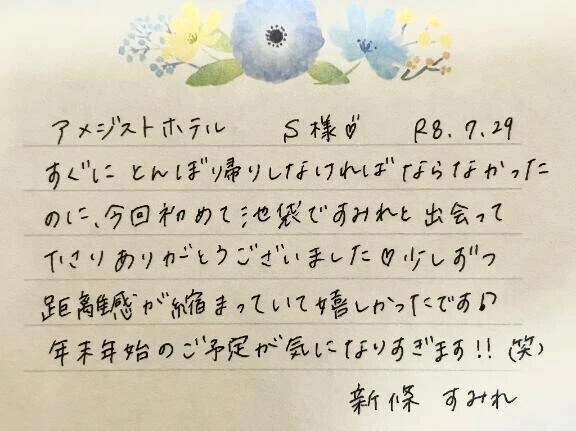 アメジストホテル S様♡ R8.7.29
すぐに とんぼり帰りしなければ ならなかった
のに、今回初めて池袋ですみれと 出会って
ださりありがとうございました♡少しずつ
距離感が縮まっていて嬉しかったです♪
年末年始のご予定が気になりすぎます!!(笑)
新條 すみれ